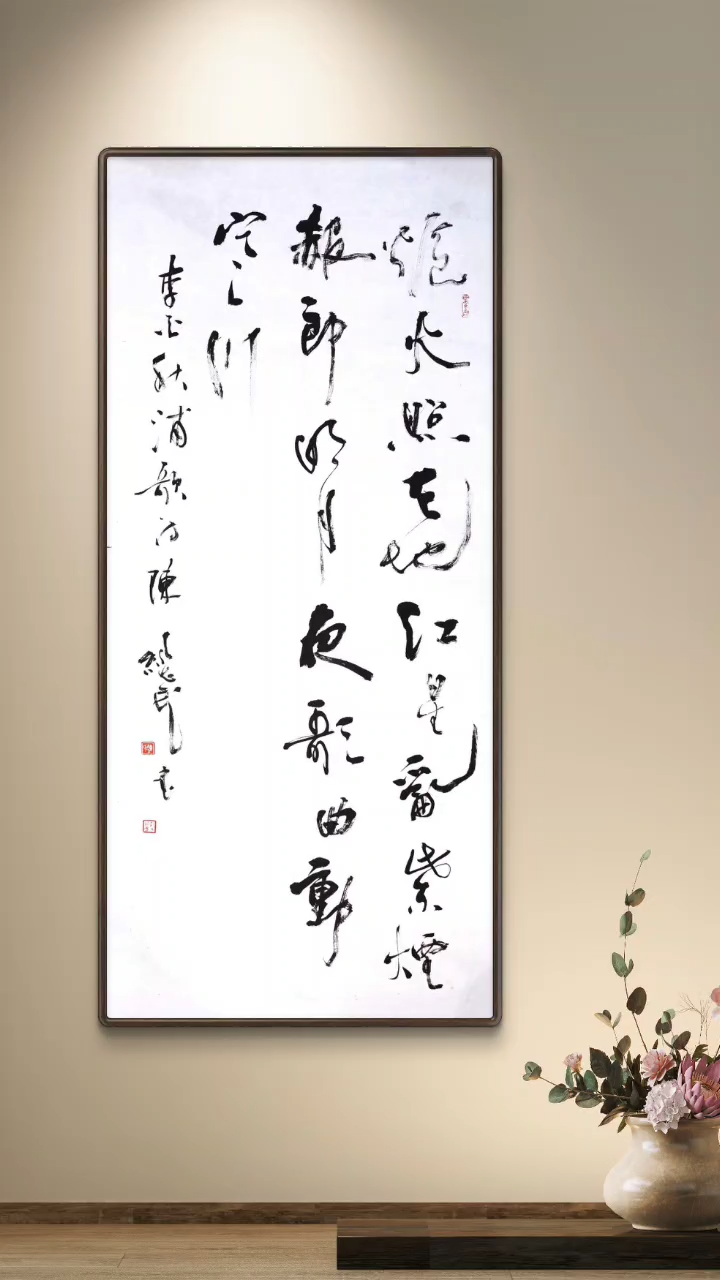 爐火照天地紅星亂紫煙
赧郎明月夜歌曲動
寒川
李白秋浦歌 陳 書